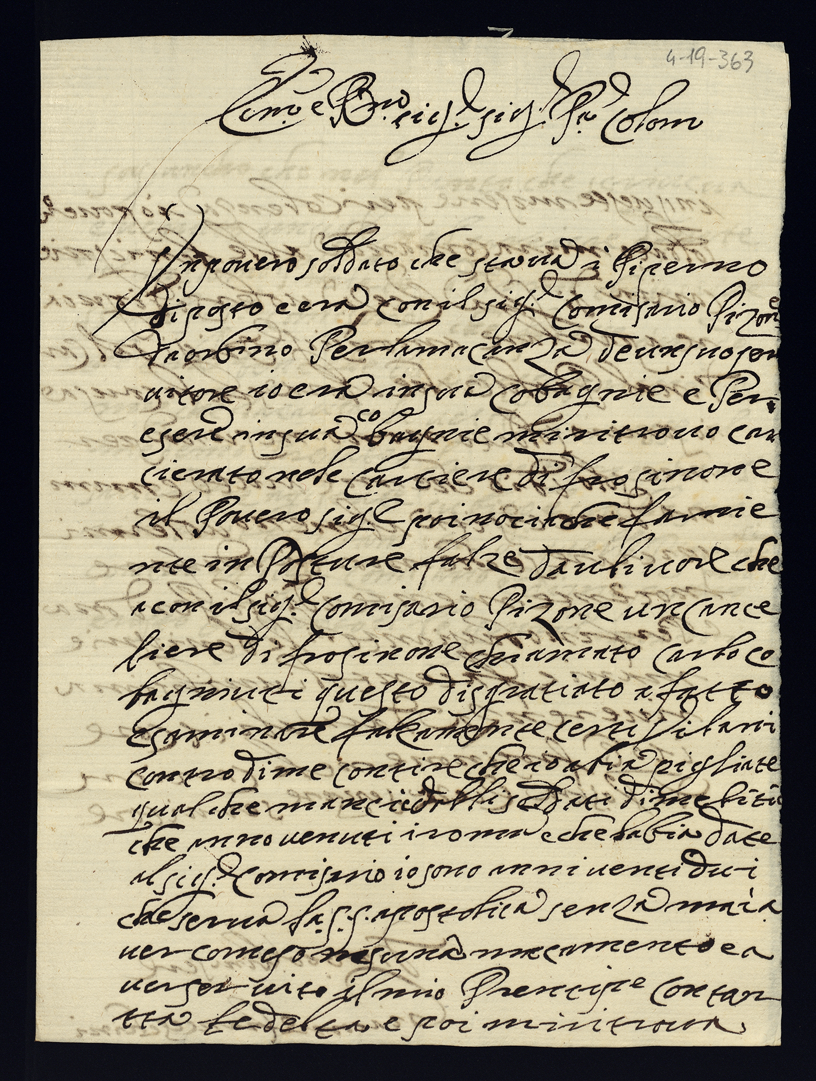 4-19-363
Em.o e R.mo sig.r sig.r P.n Colom
Un povero soldato che stava i Piperno
disposto e era con il sig.r Comisario Pizone
da orbino Per la macanza de un suo ser
uitore io era in sua cobagnie e Per
esere in sua cobagnie mi ritrouo car
cierato nele carciere di frosinone
il Pouero sig.re poi nocia che fa nie
nte in Posture falze da ubi uore che
a con il sig.r Comisario Pizone un cance
liere di frosinone chiamato carlo co
bagniuci questo disgratiato a fatto
esaminare falzamente certi Vilani
contro di me con dire che io abia pigliate
qualche mancie dalli soldati di me
che anno venuti i roma e che labia date
al sig.r Comisario io sono anni uenti dui
che serua la s. s. apostolica senza mai a
uer comeso nisuna macamento e a
uer seruito il mio Prencipe con tan
tta fedelta e poi mi ritroua